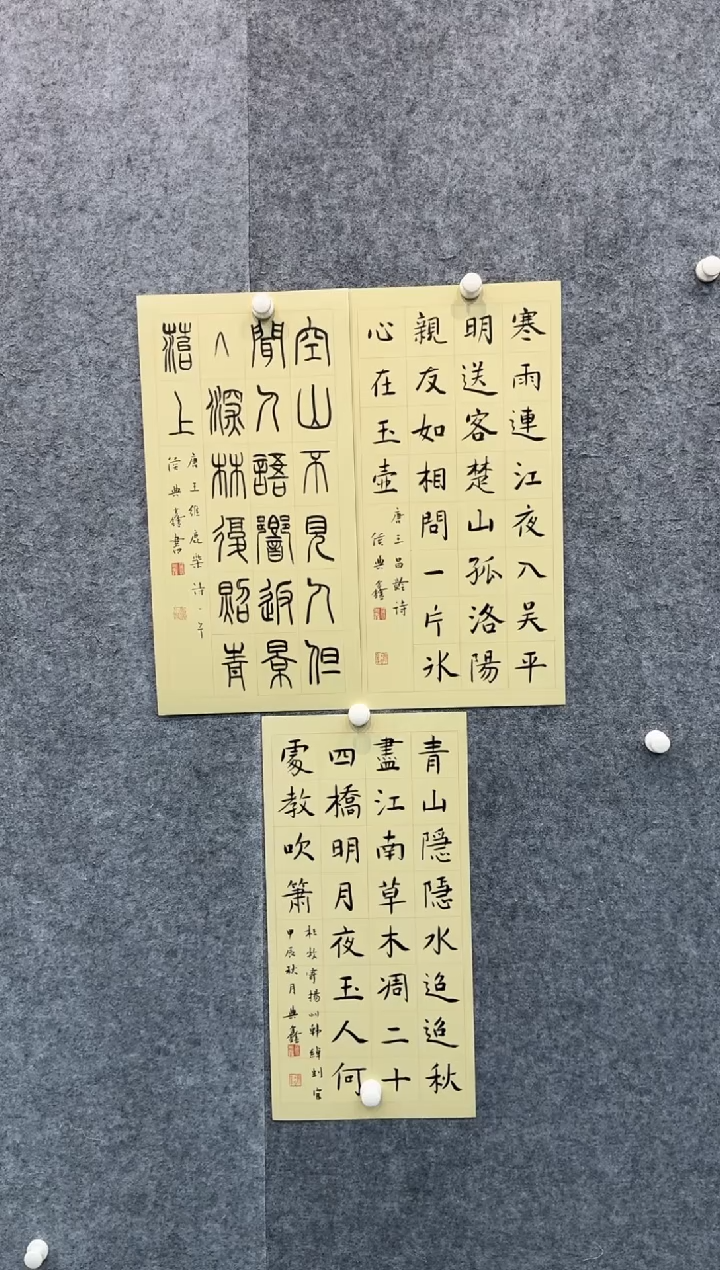 寒雨連江夜入吴平
明送客楚山孤洛陽
親友如相問一片氷
心在玉壺
唐王昌齡诗
侯典鑫
空山不見人但
聞人語響返景
入深林復照青
菭上
唐王維鹿柴诗
侯典鑫書
青山隱隱水迢迢秋
盡江南草木凋二十
四橋明月夜玉人何
處教吹簫
杜牧寄揚州韓綽判官
甲辰秋月典鑫